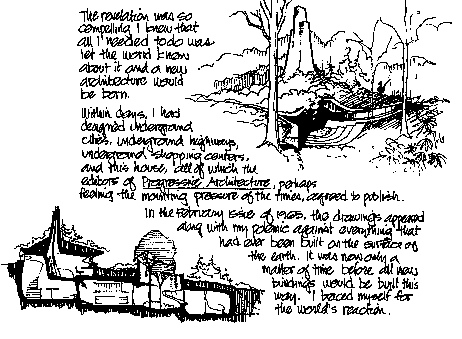 The revelation was so
compelling I knew that
all I needed to do was
let the world know
about it and a new
architecture would
be born.
Within days, I had
designed underground
cities, underground highways,
underground shopping centers,
and this house, all of which the
editors of Progressive Architecture, perhaps
feeling the mounting pressure of the times, agreed to publish.
In the February issue of 1965, the drawings appeared
along with my polemic against everything that
had ever been built on the surface of
the earth. It was now only a
matter of time before all new
buildings would be built this
way. I braced myself for
the world's reaction.